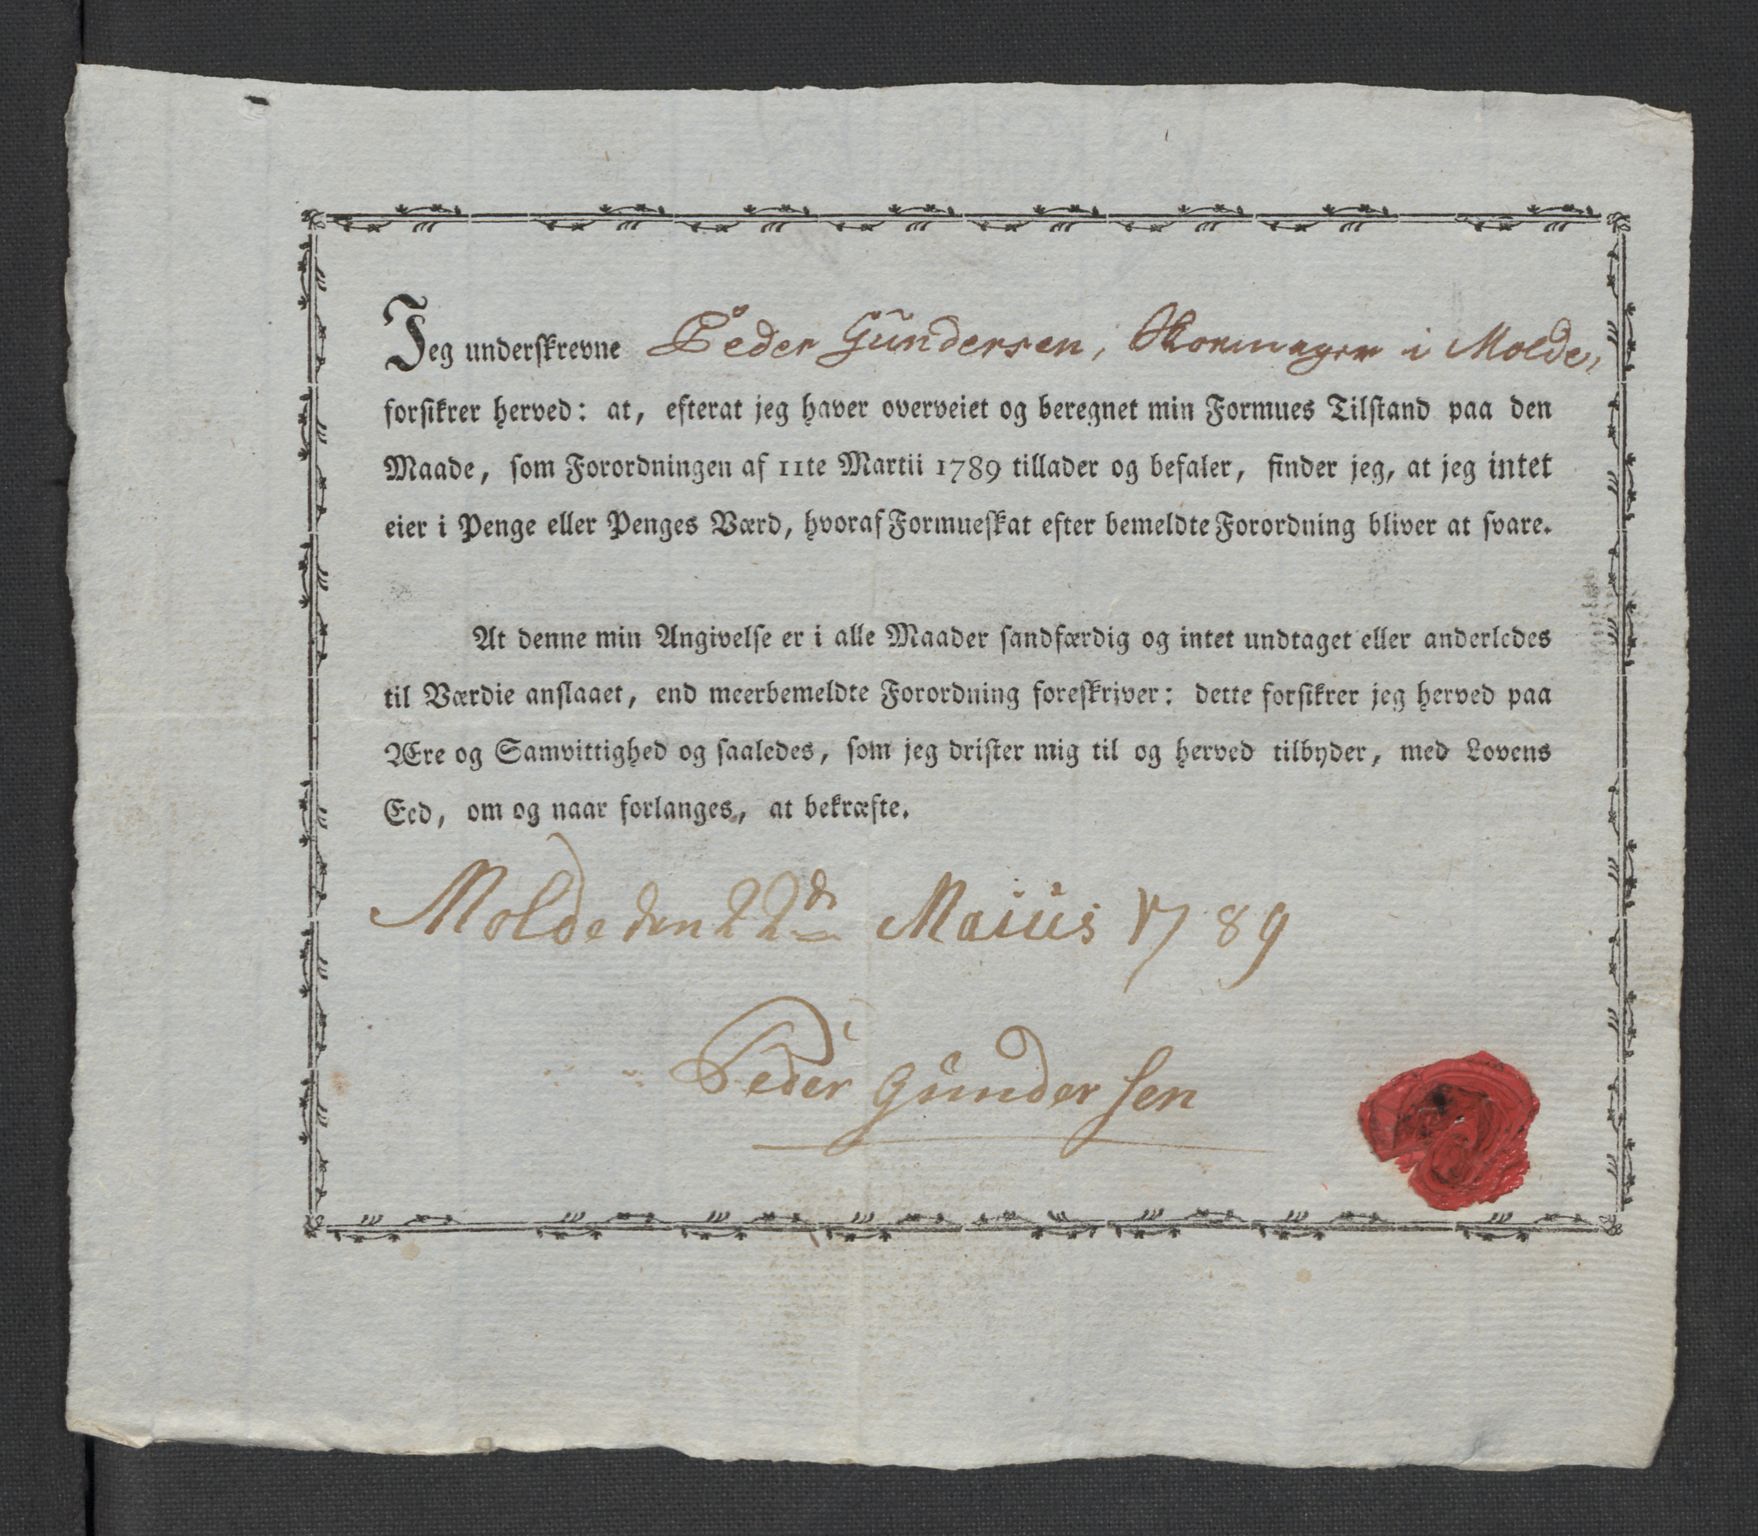 Jeg underskrevne Peder Gundersen, Skomager i Molde,
forsikrer herved: at, efterat jeg haver overveiet og beregnet min Formues Tilstand paa den
Maade, som Forordningen af 11te Martii 1789 tillader og befaler, finder jeg, at jeg intet
eier i Penge eller Penges Værd, hvoraf Formueskat efter bemeldte Forordning bliver at svare.
At denne min Angivelse er i alle Maader sandfærdig og intet undtaget eller anderledes
til Værdie anslaaet, end meerbemeldte Forordning foreskriver: dette forsikrer jeg herved paa
Ære og Samvittighed og saaledes, som jeg drister mig til og herved tilbyder, med Lovens
Eed, om og naar forlanges, at bekræfte.
Molde den 22de Maiüs 1789
Peder Gündersen